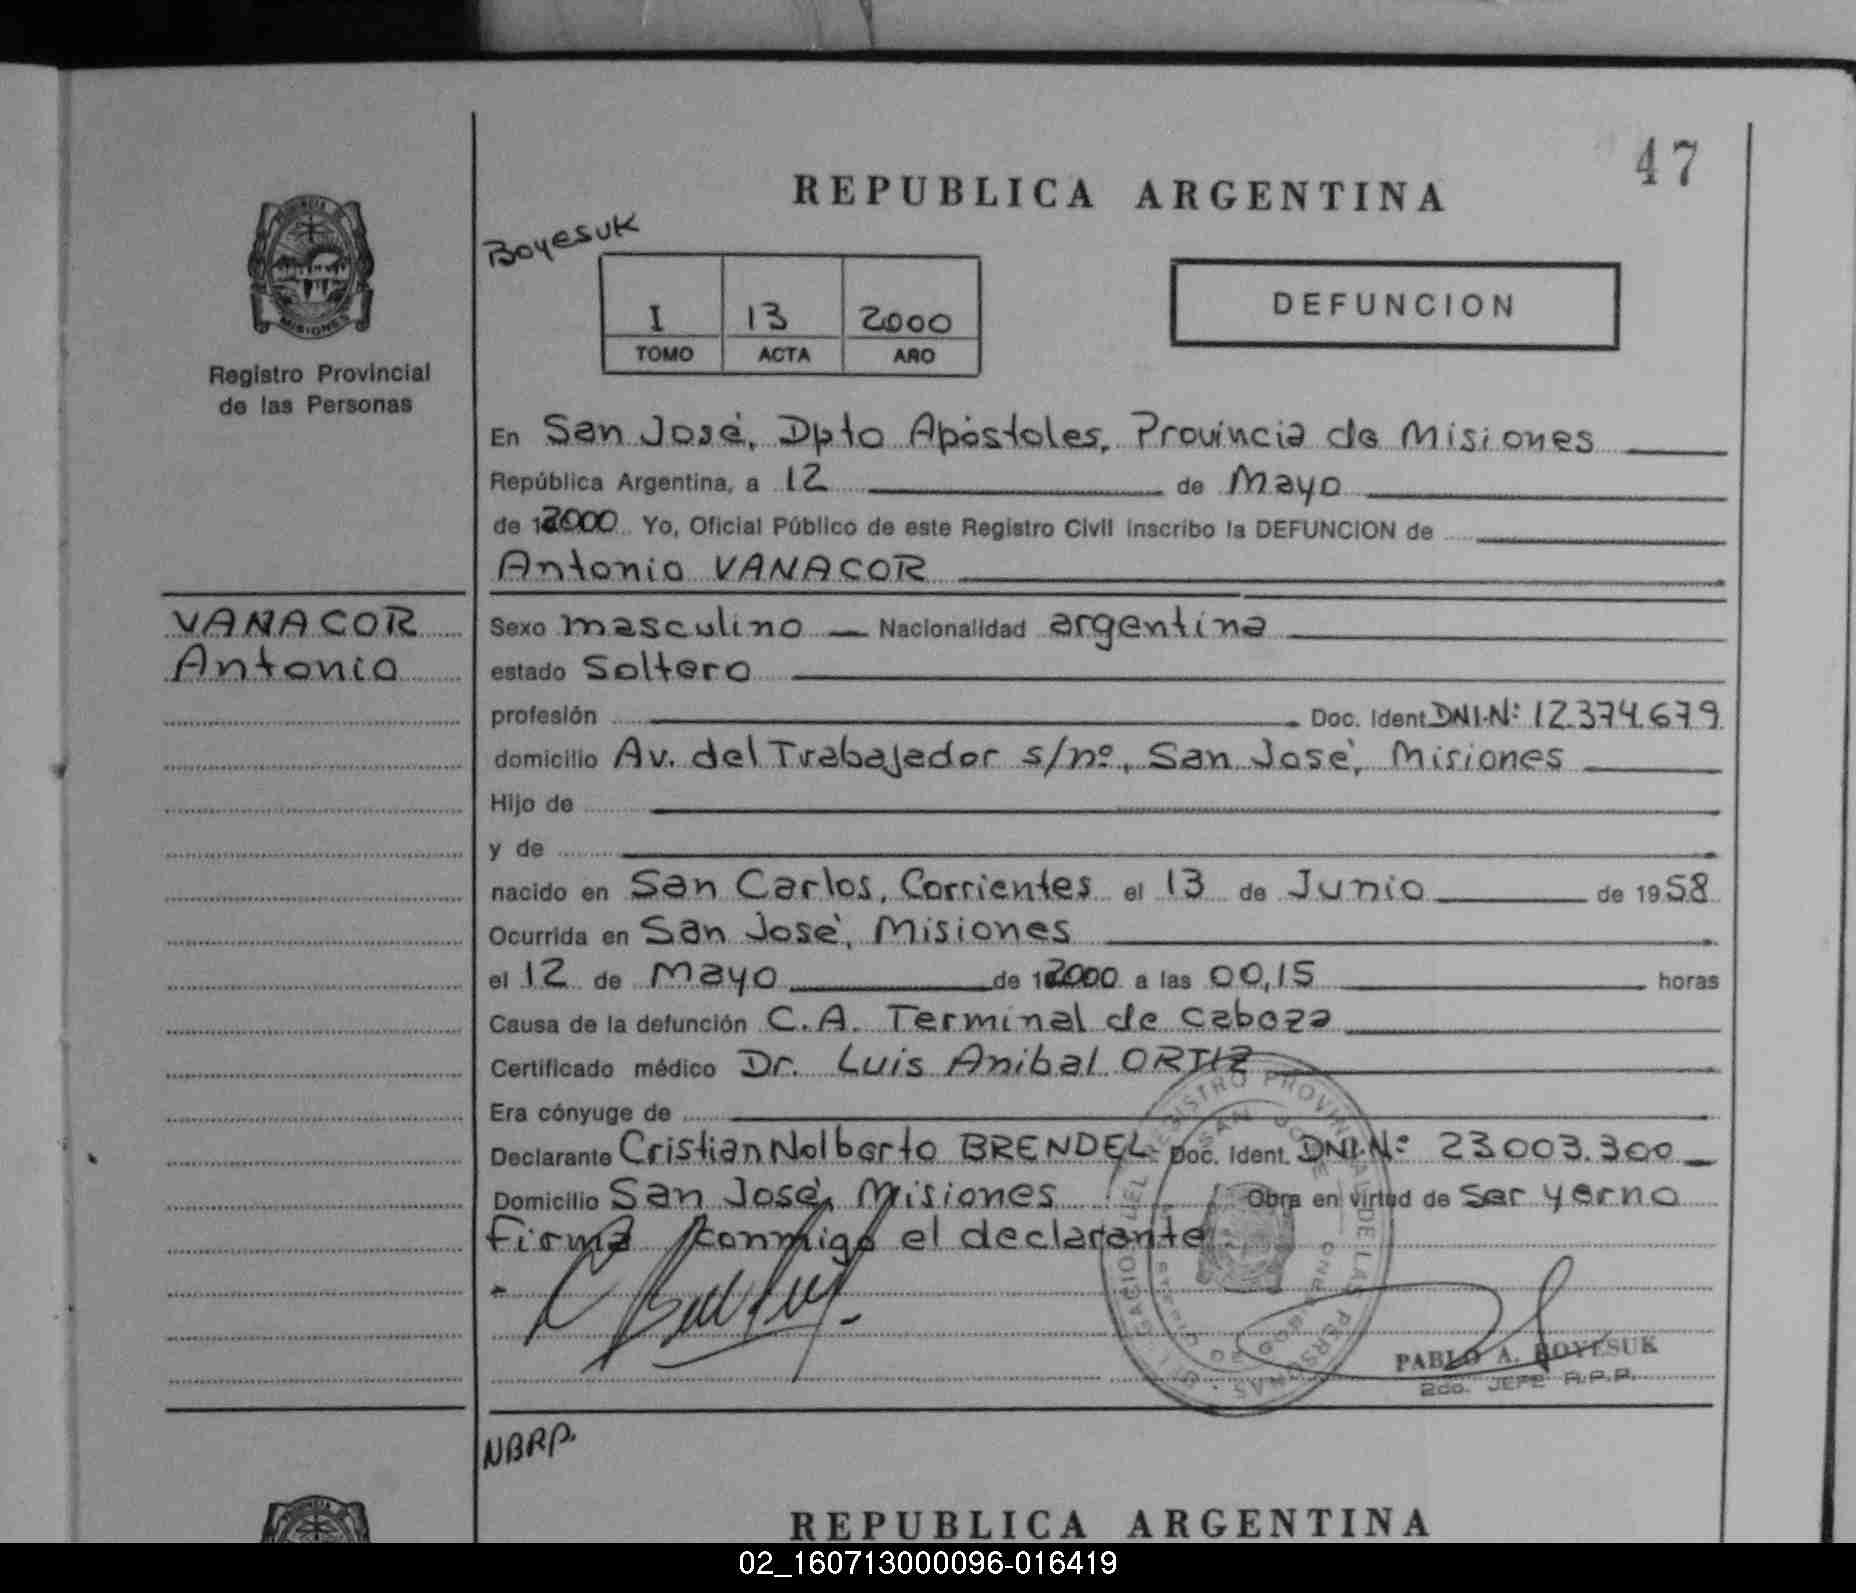 47
REPUBLICA ARGENTINA
Boyesuk
PROVINCIA DE
MISIONES
Registro Provincial
de las Personas
I 13 2000
TOMO ACTA AÑO
DEFUNCION
En San José, Dpto Apóstoles, Provincia de Misiones
República Argentina, a 12 de Mayo
de 2000 Yo, Oficial Público de este Registro Civil inscribo la DEFUNCION de
Antonio VANACOR
VANACOR
Antonio
Sexo masculino Nacionalidad argentina
estado Soltero
profesión Doc. Ident. DNI.Nº: 12.374.679
domicilio Av. del Trabajador s/nº., San José, Misiones
Hijo de
y de
nacido en San Carlos, Corrientes el 13 de Junio de 1958
Ocurrida en San José, Misiones
el 12 de Mayo de 2000 a las 00,15 horas
Causa de la defunción C.A. Terminal de Cabeza
Certificado médico Dr. Luis Anibal ORTIZ
Era cónyuge de
Declarante Cristian Nolberto BRENDEL Doc. Ident. DNI.Nº: 23003.300
Domicilio San José, Misiones Obra en virtud de ser yerno
Firma conmigo el declarante
REGISTRO PROVINCIAL DE LAS PERSONAS
SAN JOSE
PABLO A. BOYESUK
2do. JEFE R.P.P.
NBRP.
REPUBLICA ARGENTINA
02_160713000096-016419